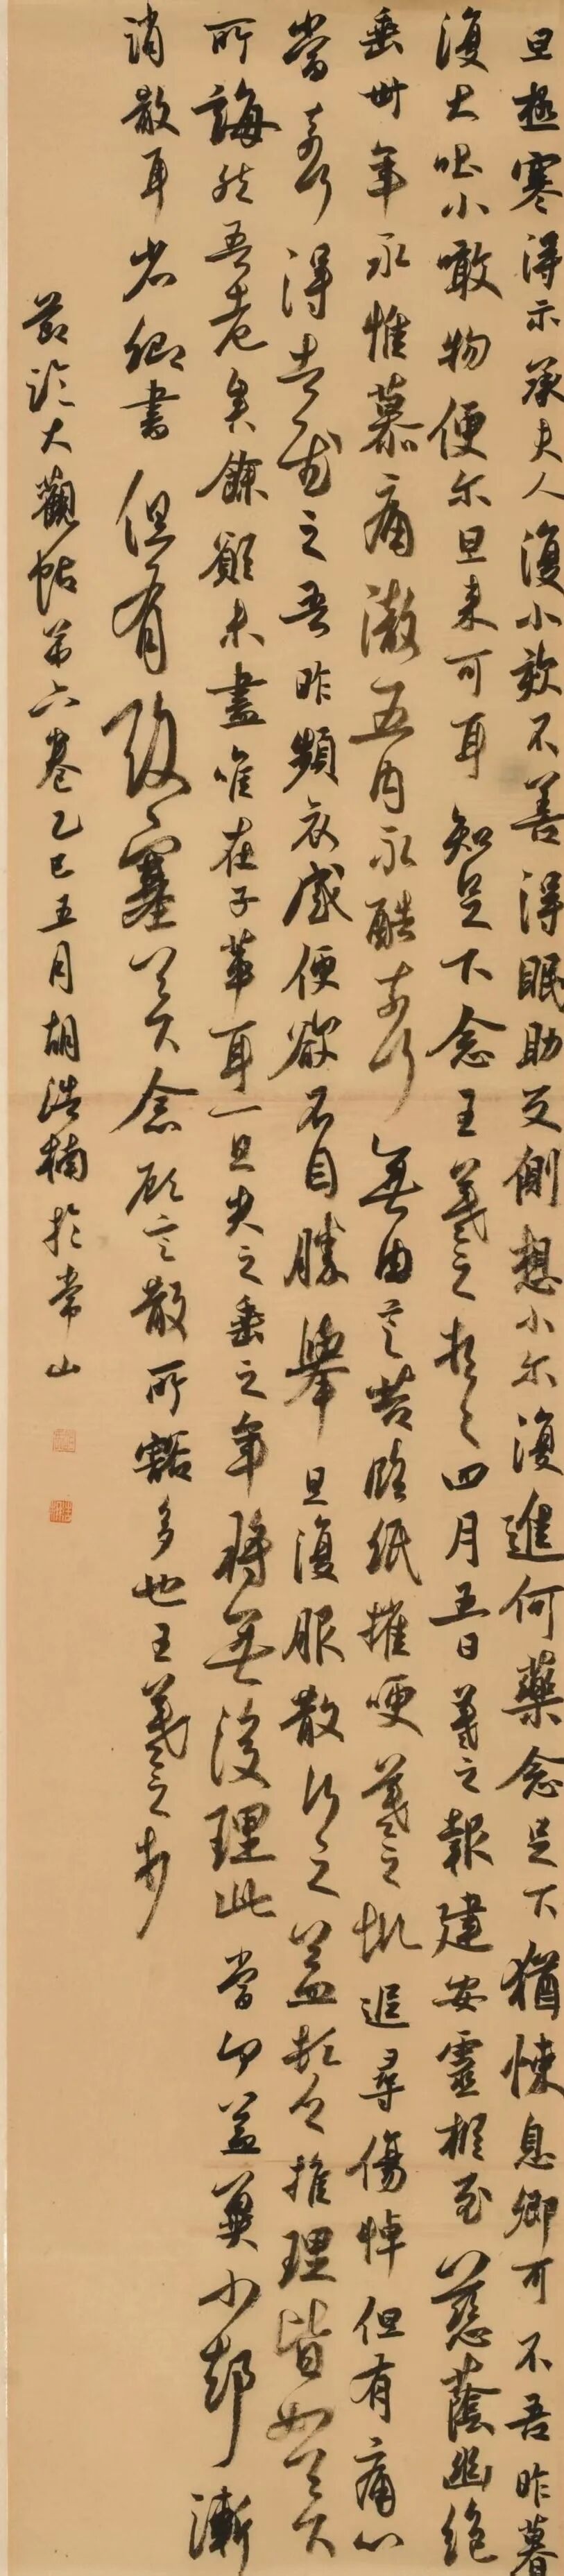 旦極寒得示承夫人復小欬不善得眠助反側想小尔復進何藥念足下猶悚息卿可不吾昨暮
復大吐小噉物便尔旦来可耳知足下念王羲之頓首四月五日羲之報建安靈柩至慈蔭幽絕
垂卅年永惟慕痛徹五内永酷奈何無由言告臨紙摧哽羲之報追尋傷悼但有痛心
當奈何得吉之吾昨頻哀感便欲不自勝舉旦復服散行之益頓乏推理皆如足下
所誨然吾老矣餘願未盡唯在子輩耳一旦失之垂之年將無復理此當何益冀小却漸
消散耳省卿書但有酸塞足下念顧言散所豁多也王羲之
節臨大觀帖第六卷乙巳五月胡浩楠於常山